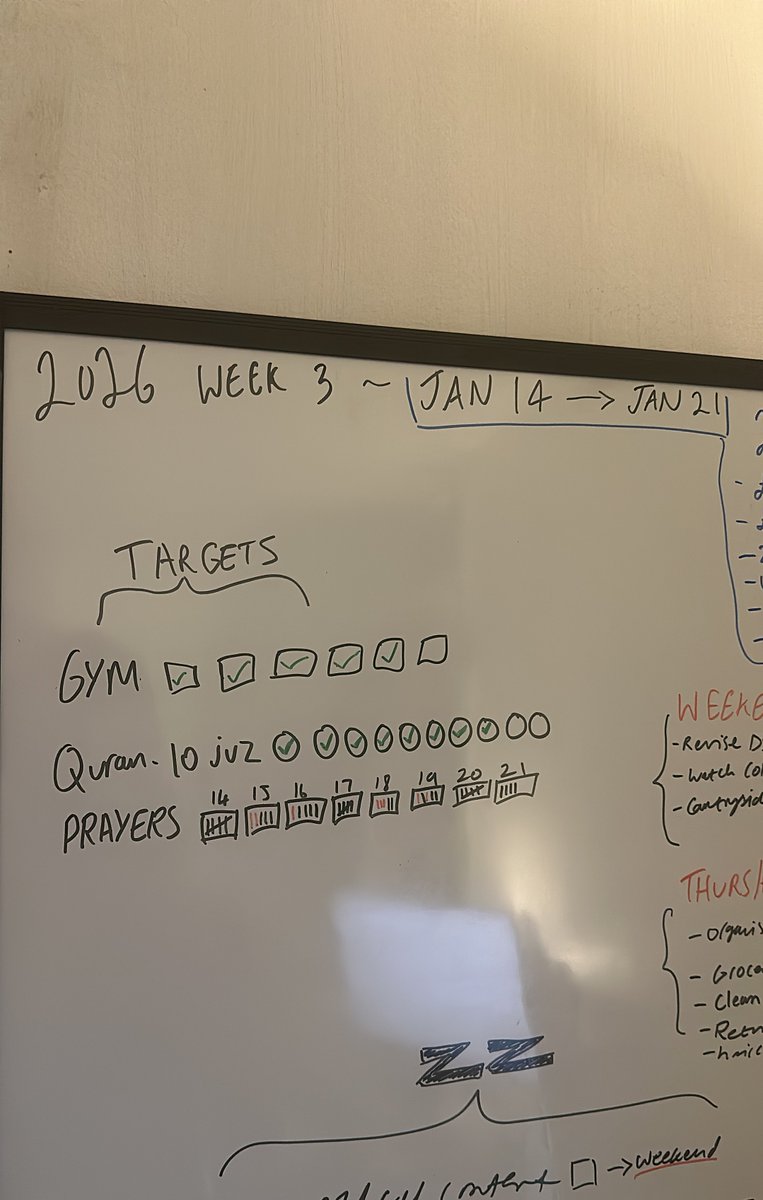 2026 WEEK 3 ~ JAN 14 → JAN 21
TARGETS
GYM
Quran. 10 juz
14 15 16 17 18 19 20 21
PRAYERS
WEEKE
- Revise D
- Watch Co
- Countrysid
THURS
- Organis
- Groce
- Clean
- Retu
ZZ
content → weekend